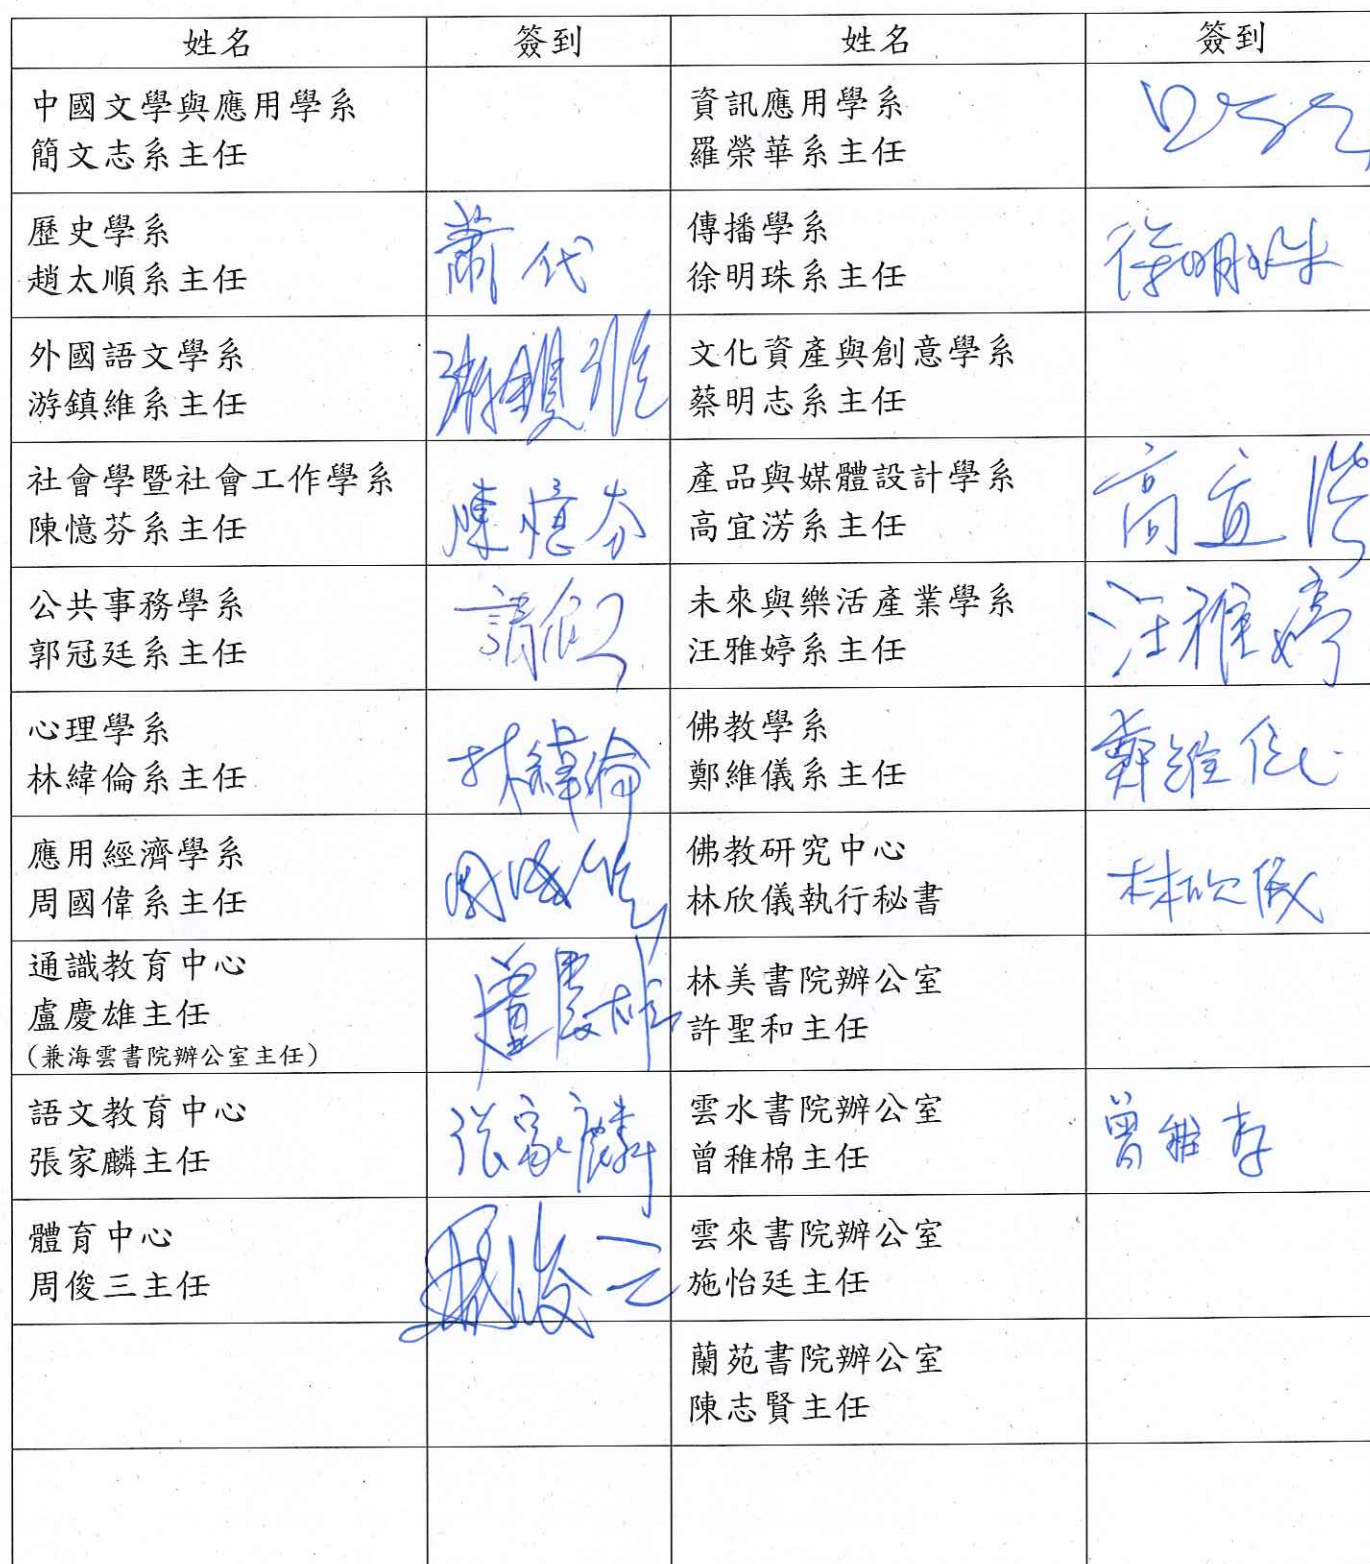 姓名 簽到 姓名 簽到
中國文學與應用學系
簡文志系主任
資訊應用學系
羅榮華系主任
歷史學系
趙太順系主任
蕭代
傳播學系
徐明珠系主任
徐明珠
外國語文學系
游鎮維系主任
游鎮維
文化資產與創意學系
蔡明志系主任
社會學暨社會工作學系
陳憶芬系主任
陳憶芬
產品與媒體設計學系
高宜淓系主任
高宜淓
公共事務學系
郭冠廷系主任
請假
未來與樂活產業學系
汪雅婷系主任
汪雅婷
心理學系
林緯倫系主任
林緯倫
佛教學系
鄭維儀系主任
鄭維儀
應用經濟學系
周國偉系主任
周國偉
佛教研究中心
林欣儀執行秘書
林欣儀
通識教育中心
盧慶雄主任
(兼海雲書院辦公室主任)
盧慶雄
林美書院辦公室
許聖和主任
語文教育中心
張家麟主任
張家麟
雲水書院辦公室
曾稚棉主任
體育中心
周俊三主任
周俊三
雲來書院辦公室
施怡廷主任
蘭苑書院辦公室
陳志賢主任